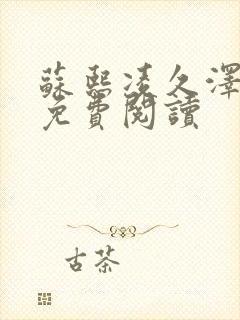 蘇熙凌久澤
免費閱讀
古茶